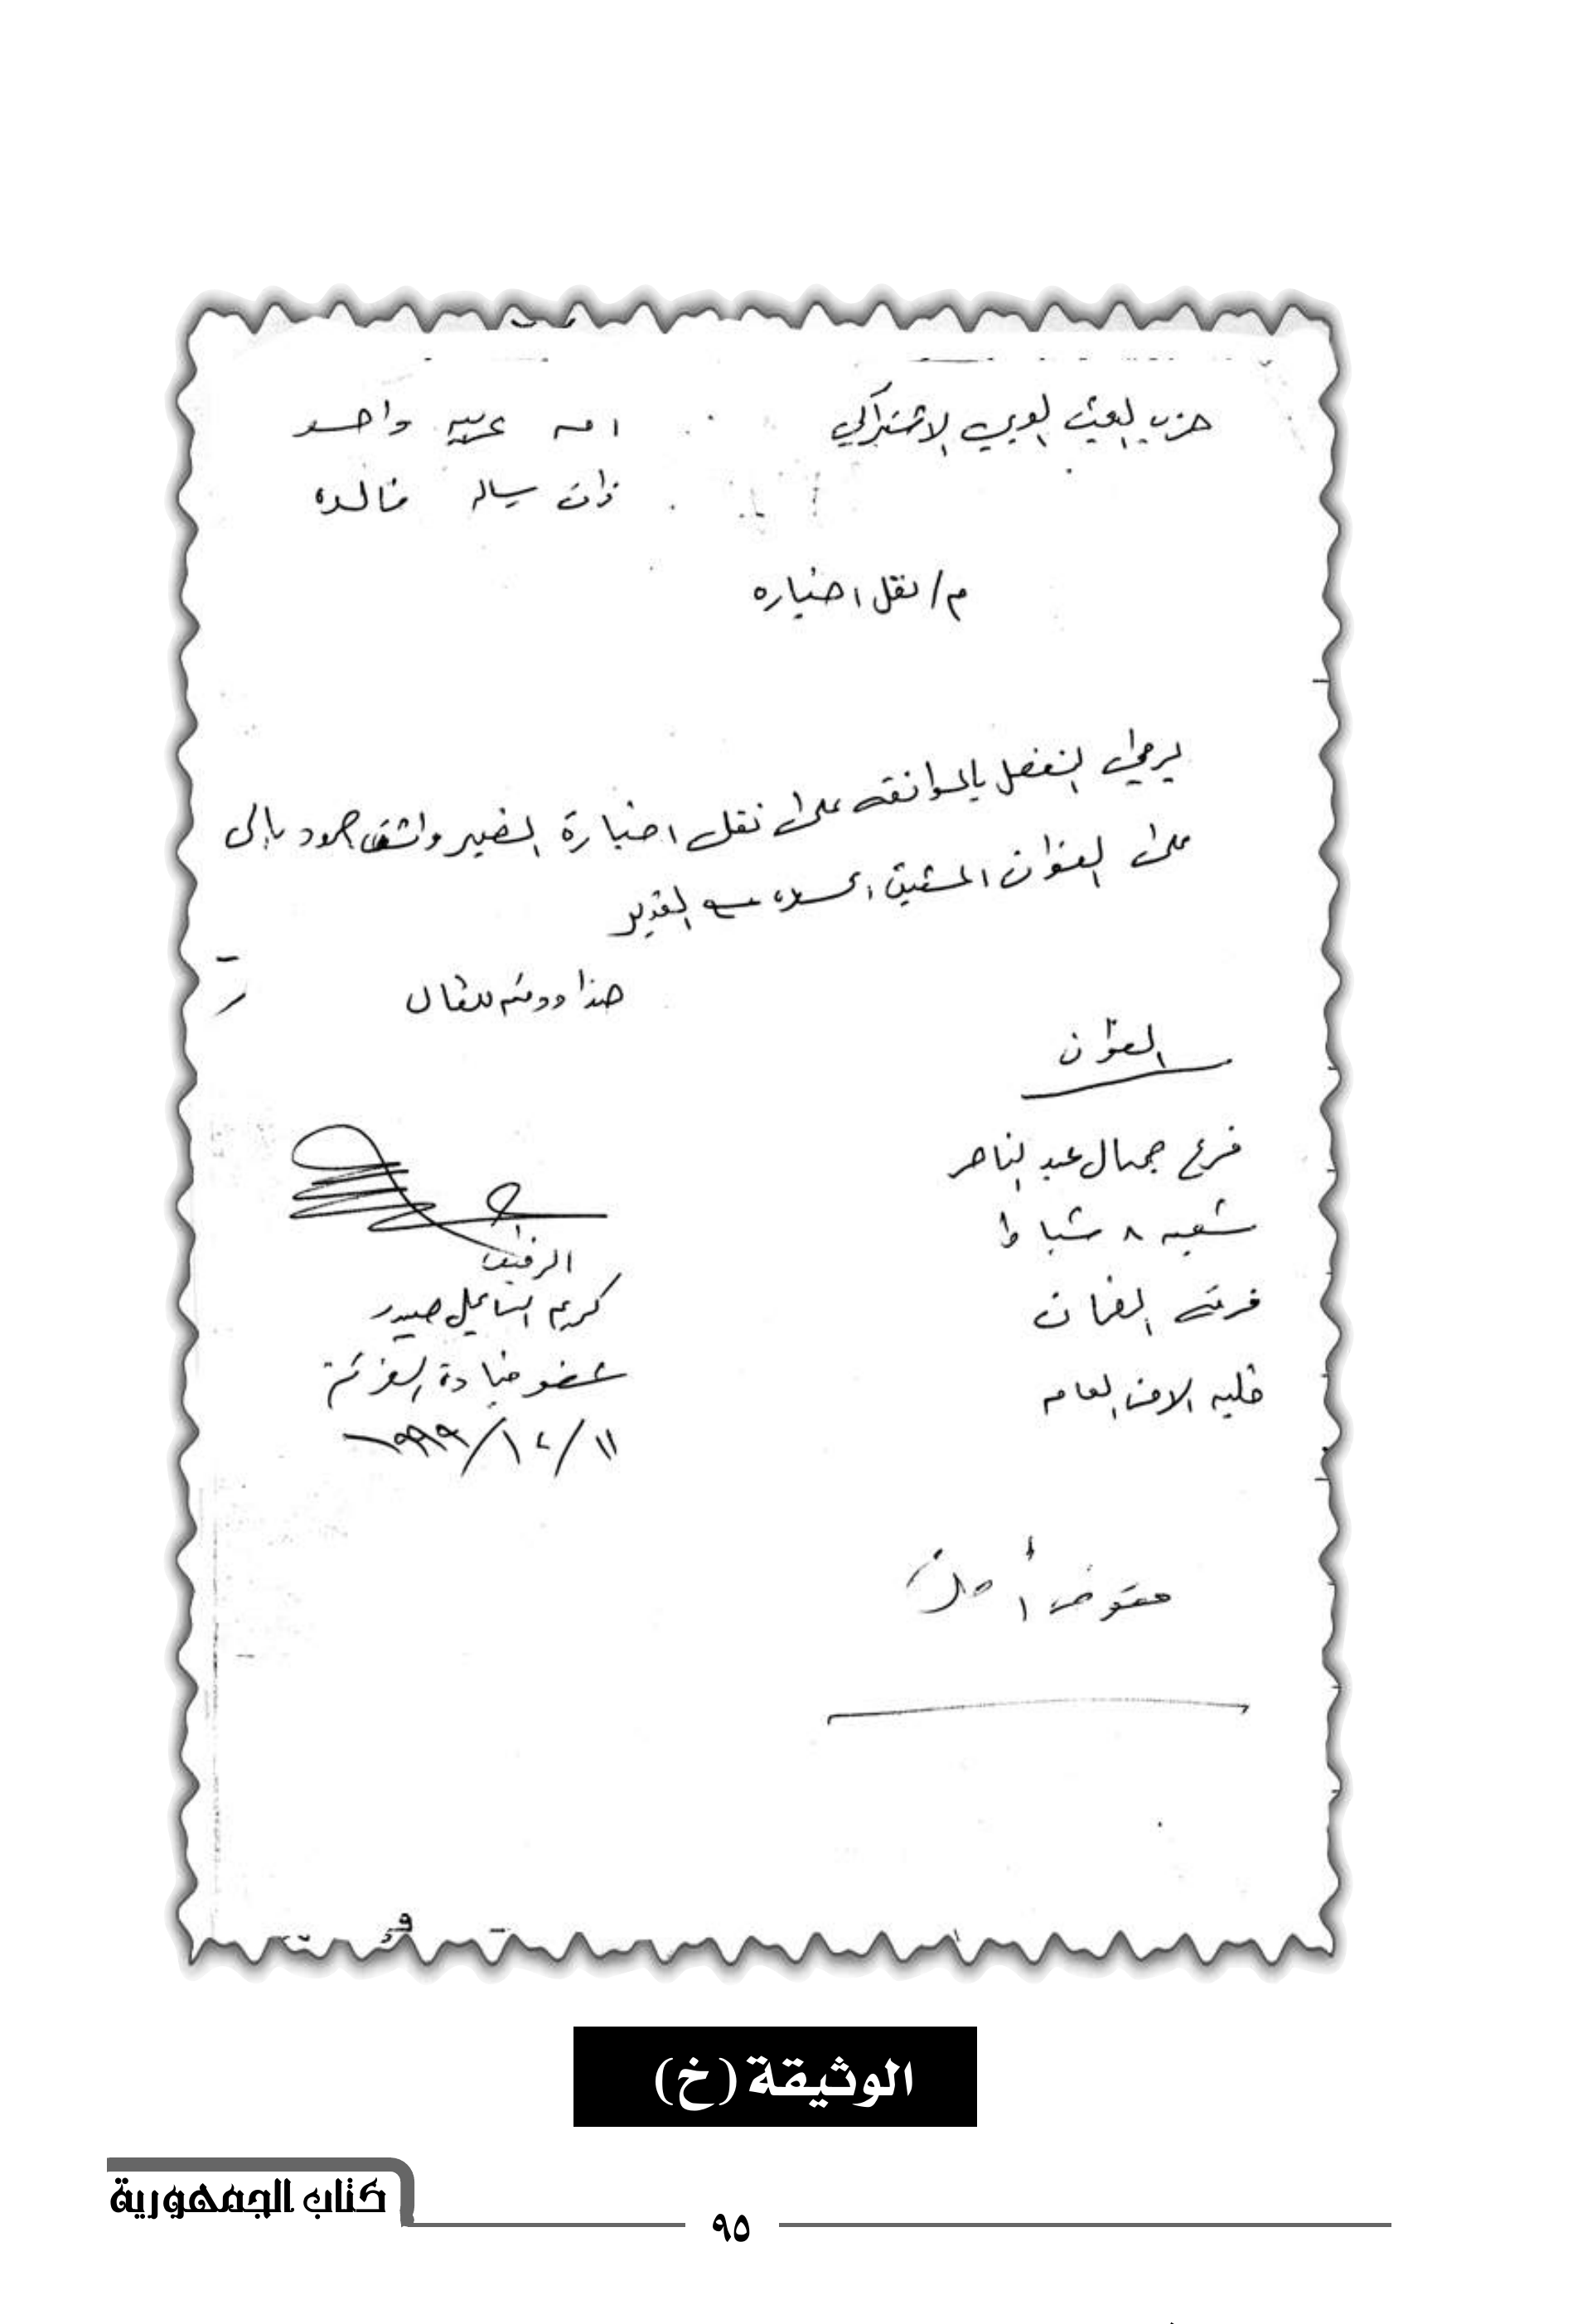 حزب البعث العربي الاشتراكي
امه عربيه واحده
ذات رساله خالده
م/ نقل اضباره
يرجى التفضل بالموافقه على نقل اضبارة النصير واثق حمود
على العنوان المثبت مع التقدير
هذا ودمتم للنضال
العنوان
فرع جمال عبد الناصر
شعبه ٨ شباط
فرقه
خليه الامن العام
الرفيق
كريم اسماعيل حيدر
عضو قيادة الفرقة
١١/١٢/١٩٩٩
الوثيقة (خ)
كتاب الجمهورية
٩٥